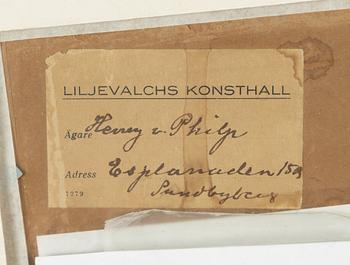 LILJEVALCHS KONSTHALL
Ägare Henry v. Philp
Adress Esplanaden 15A
Sundbyberg
1279